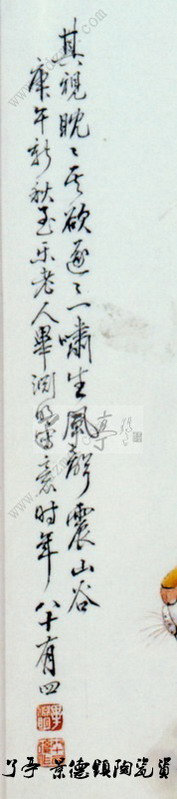 其視眈々其欲逐々一嘯生風聲震山谷
庚午新秋至乐老人畢渊明寫意时年八十有四
了亭 景德鎮陶瓷資